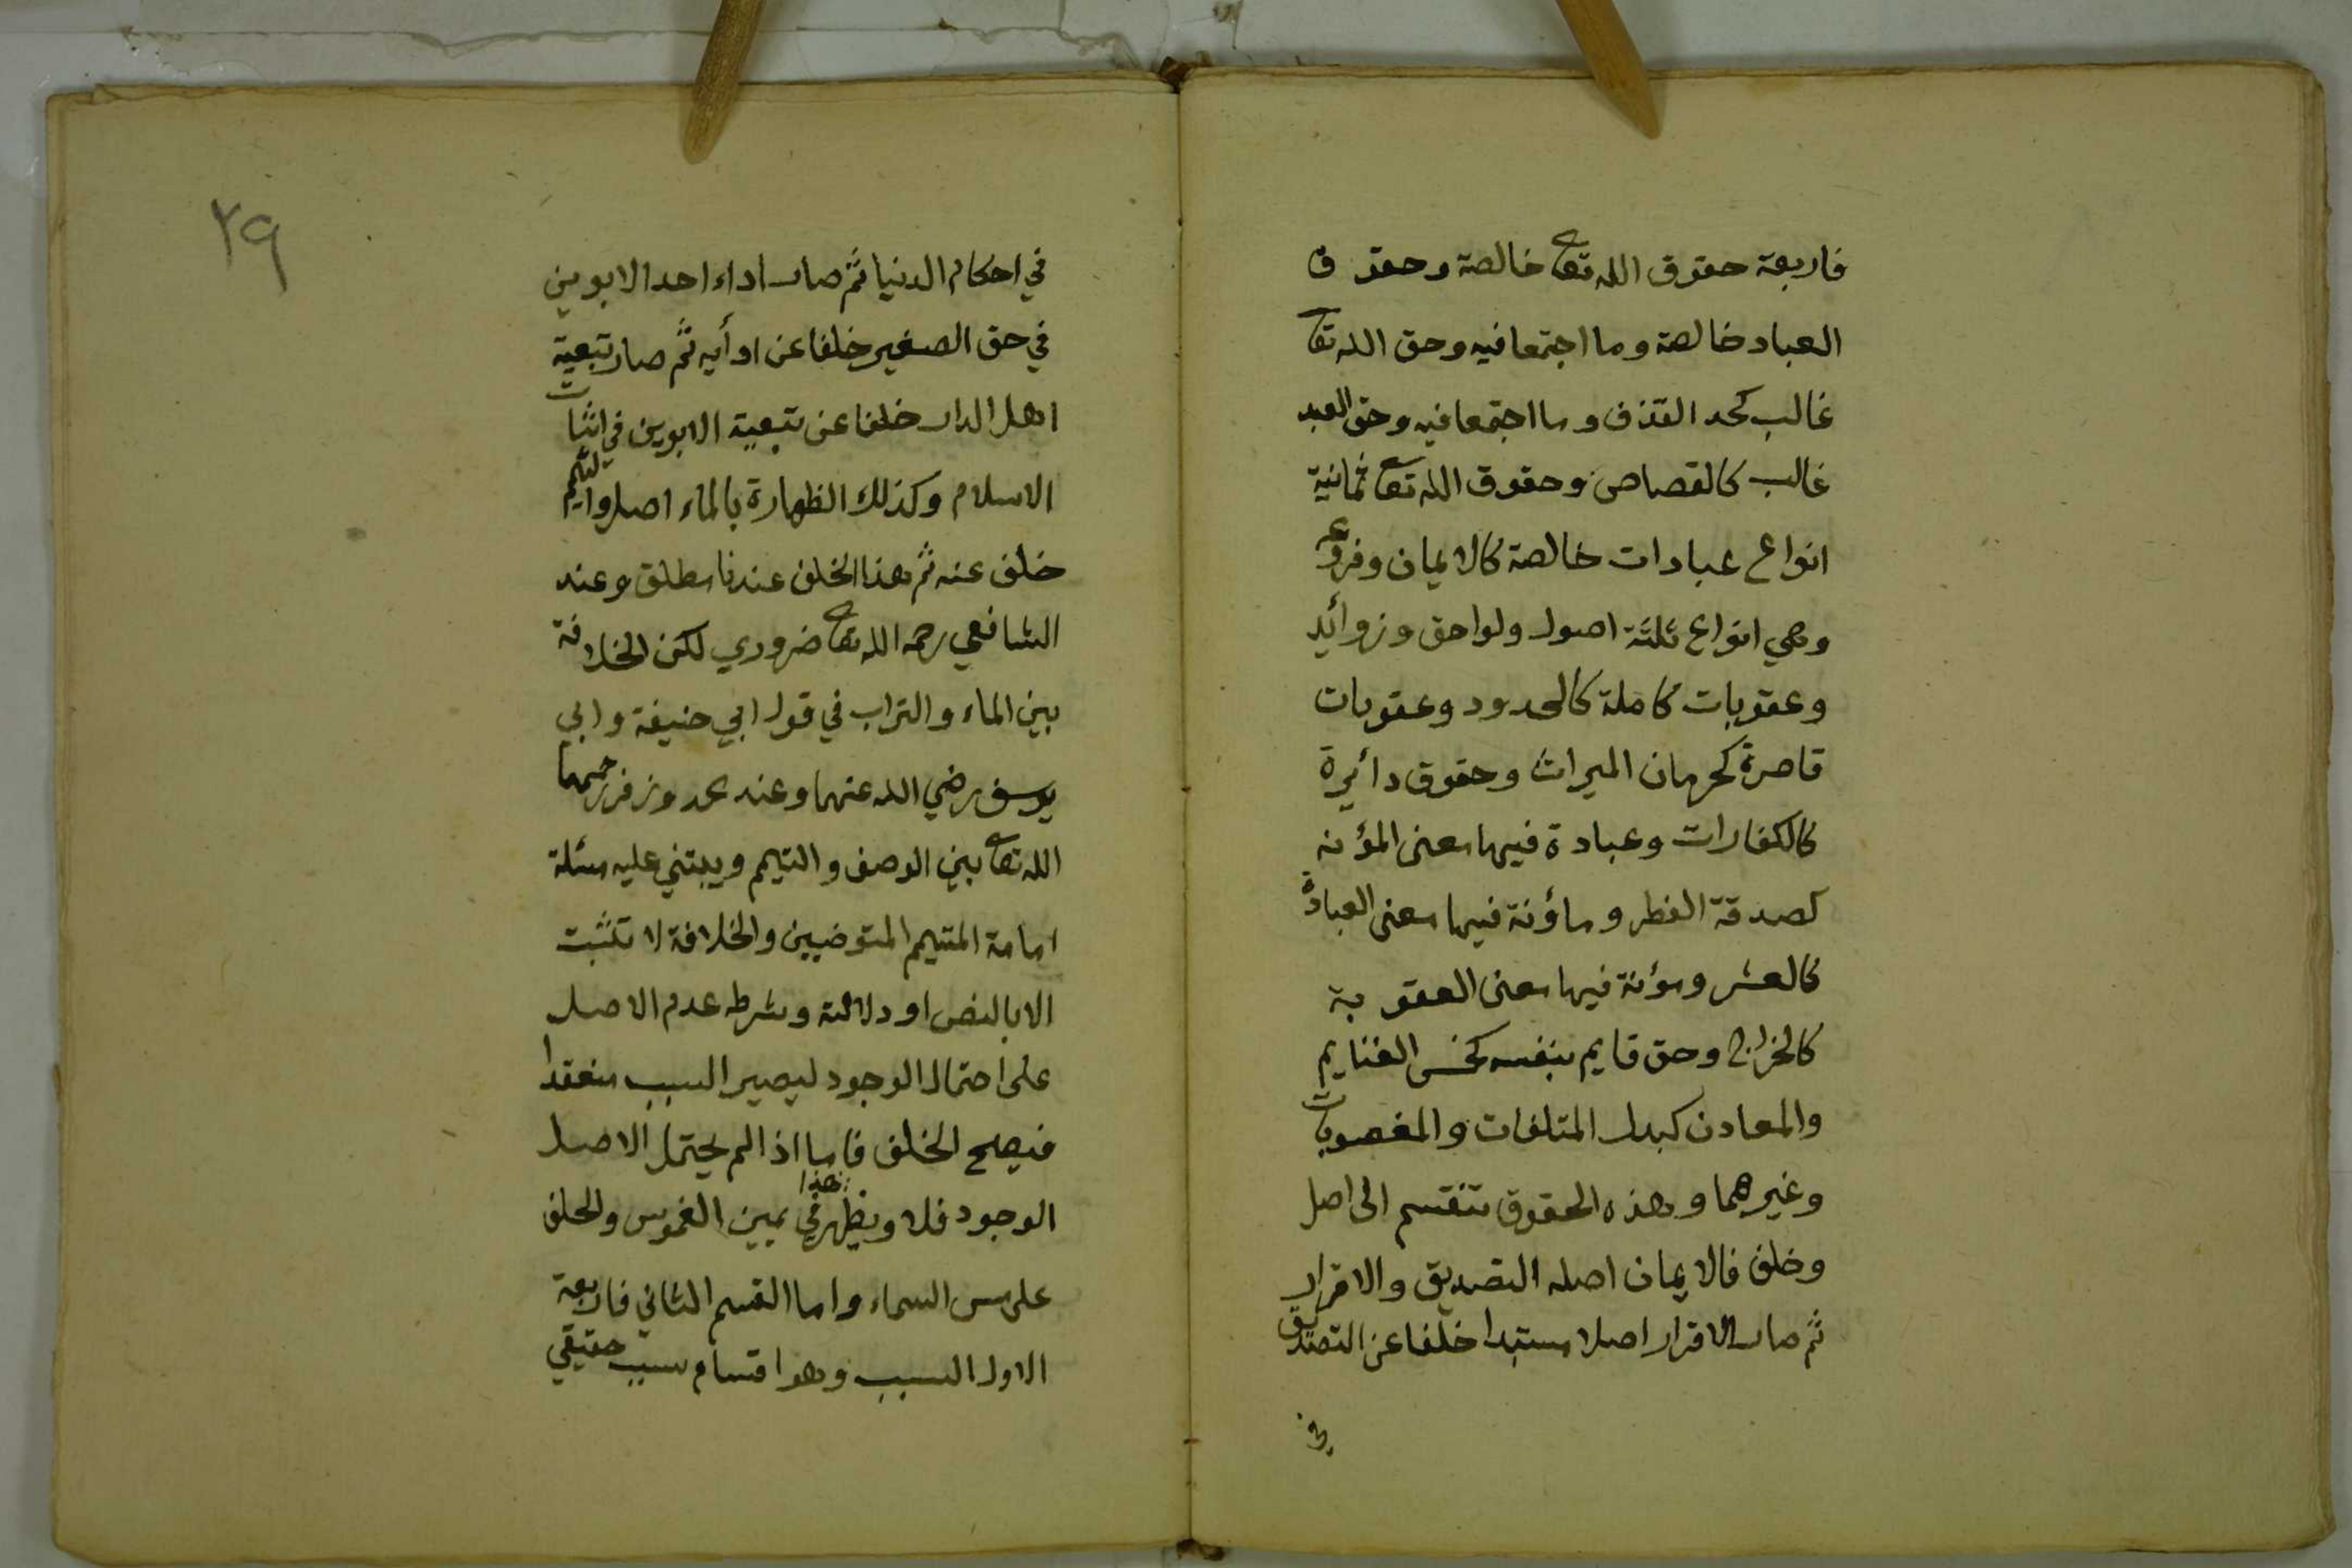 فاربعة حقوق الله تعا خالصة وحقوق
العباد خالصة وما اجتمعا فيه وحق الله تعا
غالب كحد القذف وما اجتمعا فيه وحق العبد
غالب كالقصاص وحقوق الله تعا ثمانية
انواع عبادات خالصة كالايمان وفروعه
وهي انواع ثلثة اصول ولواحق وزوأيد
وعقوبات كاملة كالحدود وعقوبات
قاصرة كحرمان الميراث وحقوق دائيرة
كالكفارات وعبادة فيها معنى المؤنه
كصدقة الفطر وماؤنة فيها معنى العبادة
كالعشر ومؤنة فيها معنى العقوبة
كالخراج وحق قايم بنفسه كخمس الغنايم
والمعادن كبدل المتلفات والمغصوبات
وغيرهما وهذه الحقوق تنقسم الى اصل
وخلف فالايمان اصله التصديق والاقرار
ثم صار الاقرار اصلا مستبدا خلفا عن التصديق
في
٢٩
في احكام الدنيا ثم صار اداء احد الابوين
في حق الصغير خلفا عن ادأيه ثم صار تبعية
اهل الدار خلفا عن تبعية الابوين في اثبات
الاسلام وكذلك الطهارة بالماء اصل والتيمم
خلف عنه ثم هذا الخلف عندنا مطلق وعند
الشافعي رحمه الله تعا ضروري لكن الخلافة
بين الماء والتراب في قول ابي حنيفة وابي
يوسف رضي الله عنهما وعند محمد وزفر رحمهما
الله تعا بين الوصف والتيمم ويبتني عليه مسئلة
امامة المتيمم المتوضيين والخلافة لا تثبت
الا بالنص او دلالته وشرطه عدم الاصل
على احتمال الوجود ليصير السبب منعقدا
فيصح الخلف فاما اذا لم يحتمل الاصل
الوجود فلا ويظهر هذا في يمين الغموس والحلف
على مس السماء واما القسم الثاني فاربعة
الاول السبب وهو اقسام سبب حقيقي